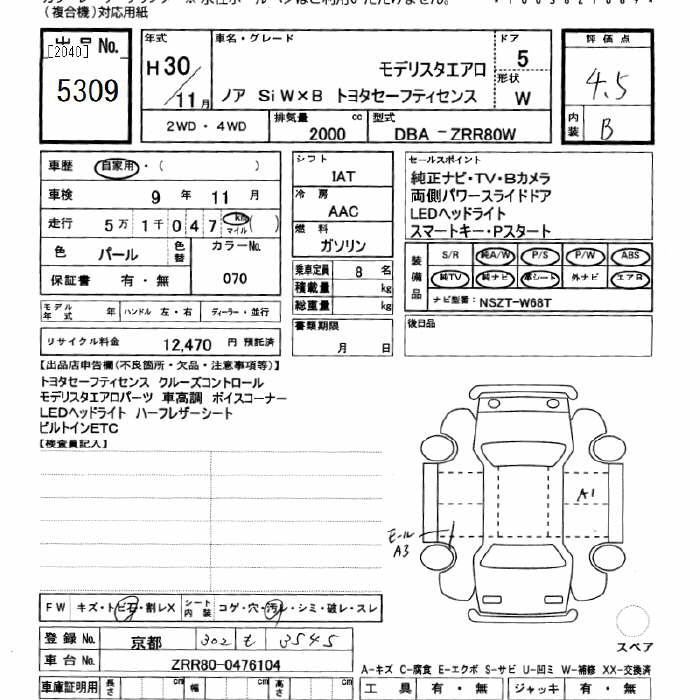 (複合機)対応用紙
出品 No.
[2040]
5309
年式
H30/11月
車名・グレード
モデリスタエアロ
ノア Si W×B トヨタセーフティセンス
ドア
5
形状
W
評価点
4.5
内装
B
2WD・4WD
排気量 2000 cc
型式 DBA-ZRR80W
車歴 自家用・( )
車検 9年 11月
走行 5万1千047 km マイル ( )
色 パール 色替 カラーNo. 070
保証書 有・無
モデル年式 年 ハンドル 左・右 ディーラー・並行
リサイクル料金 12,470 円 預託済
シフト
IAT
冷房
AAC
燃料
ガソリン
乗車定員 8 名
積載量 kg
総重量 kg
書類期限
月 日
セールスポイント
純正ナビ・TV・Bカメラ
両側パワースライドドア
LEDヘッドライト
スマートキー・Pスタート
装備品
S/R 純A/W P/S P/W ABS
純TV 純ナビ 革シート 外ナビ エアB
ナビ型番: NSZT-W68T
後日品
【出品店申告欄(不良箇所・欠品・注意事項等)】
トヨタセーフティセンス クルーズコントロール
モデリスタエアロパーツ 車高調 ボイスコーナー
LEDヘッドライト ハーフレザーシート
ビルトインETC
【検査員記入】
A1
モール
A3
FW キズ・トビ石・割レX シート内装 コゲ・穴・汚レ・シミ・破レ・スレ
登録 No. 京都 302 も 3545
車台 No. ZRR80-0476104
車庫証明用 長さ cm 幅 cm 高さ cm
スペア
A-キズ C-腐食 E-エクボ S-サビ U-凹ミ W-補修 XX-交換済
工具 有・無 ジャッキ 有・無